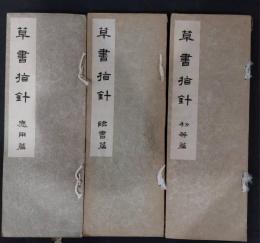 草書指針
應用篇
草書指針
臨書篇
草書指針
初等篇